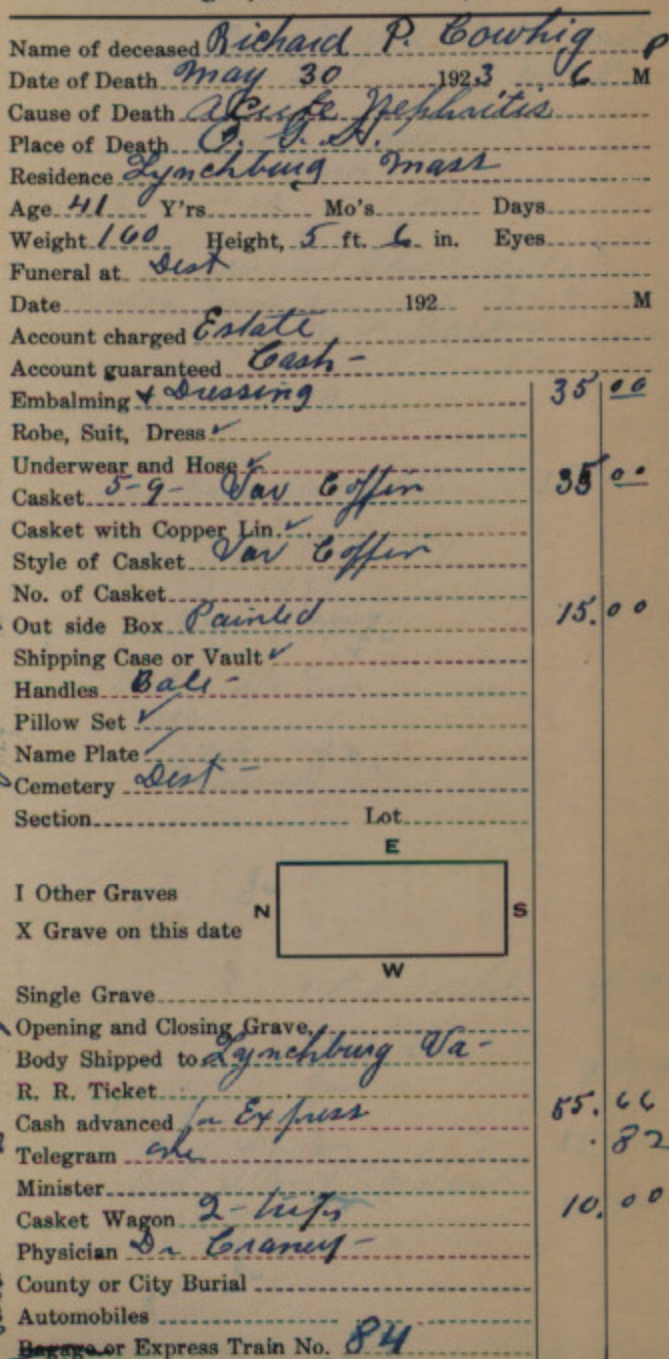 Name of deceased Richard P. Cowhig
Date of Death May 30 1923 6 P M
Cause of Death Acute Nephritis
Place of Death
Residence Lynchburg Mass
Age 41 Y'rs Mo's Days
Weight 160 Height, 5 ft. 6 in. Eyes
Funeral at Dest
Date 192 M
Account charged Estate
Account guaranteed Cash -
Embalming & Dressing 35 00
Robe, Suit, Dress ✓
Underwear and Hose ✓
Casket 5-9- Var Coffin 35 00
Casket with Copper Lin. ✓
Style of Casket Var Coffin
No. of Casket
Out side Box Painted 15.00
Shipping Case or Vault ✓
Handles Bale -
Pillow Set ✓
Name Plate ✓
Cemetery Dest -
Section Lot
E
I Other Graves
N S
X Grave on this date
W
Single Grave
Opening and Closing Grave
Body Shipped to Lynchburg Va -
R. R. Ticket
Cash advanced for Express 55.66
Telegram one .82
Minister
Casket Wagon 2- trips 10.00
Physician Dr
County or City Burial
Automobiles
Bagage or Express Train No. 84